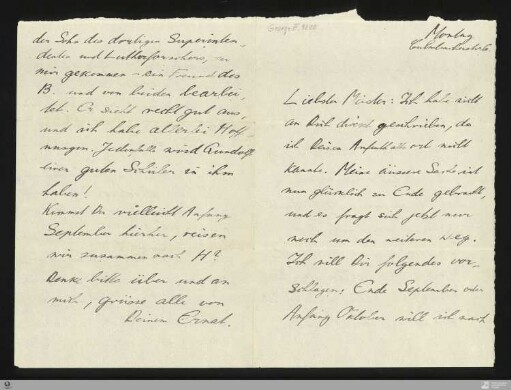 der Sohn des dortigen Superinten-
denten und Lutherforschers, zu
mir gekommen - ein Freund des
B. und von beiden bearbei-
tet. Er sieht recht gut aus,
und ich habe allerlei Hoff-
nungen. Jedenfalls wird Gundolf
einen guten Schüler in ihm
haben!
Kommst Du vielleicht Anfang
September hierher, reisen
wir zusammen nach H?
Denke bitte über und an
mich, grüsse alle von
Deinem Ernst.
George F.
Montag
Liebster Meister: Ich habe nicht
an Dich direct geschrieben, da
ich Deinen Aufenthaltsort nicht
kannte. Meine äussere Sache ist
nun glücklich zu Ende gebracht,
und es fragt sich jetzt nur
noch um den weiteren Weg.
Ich will Dir folgendes vor-
schlagen: Ende September oder
Anfang Oktober will ich nach